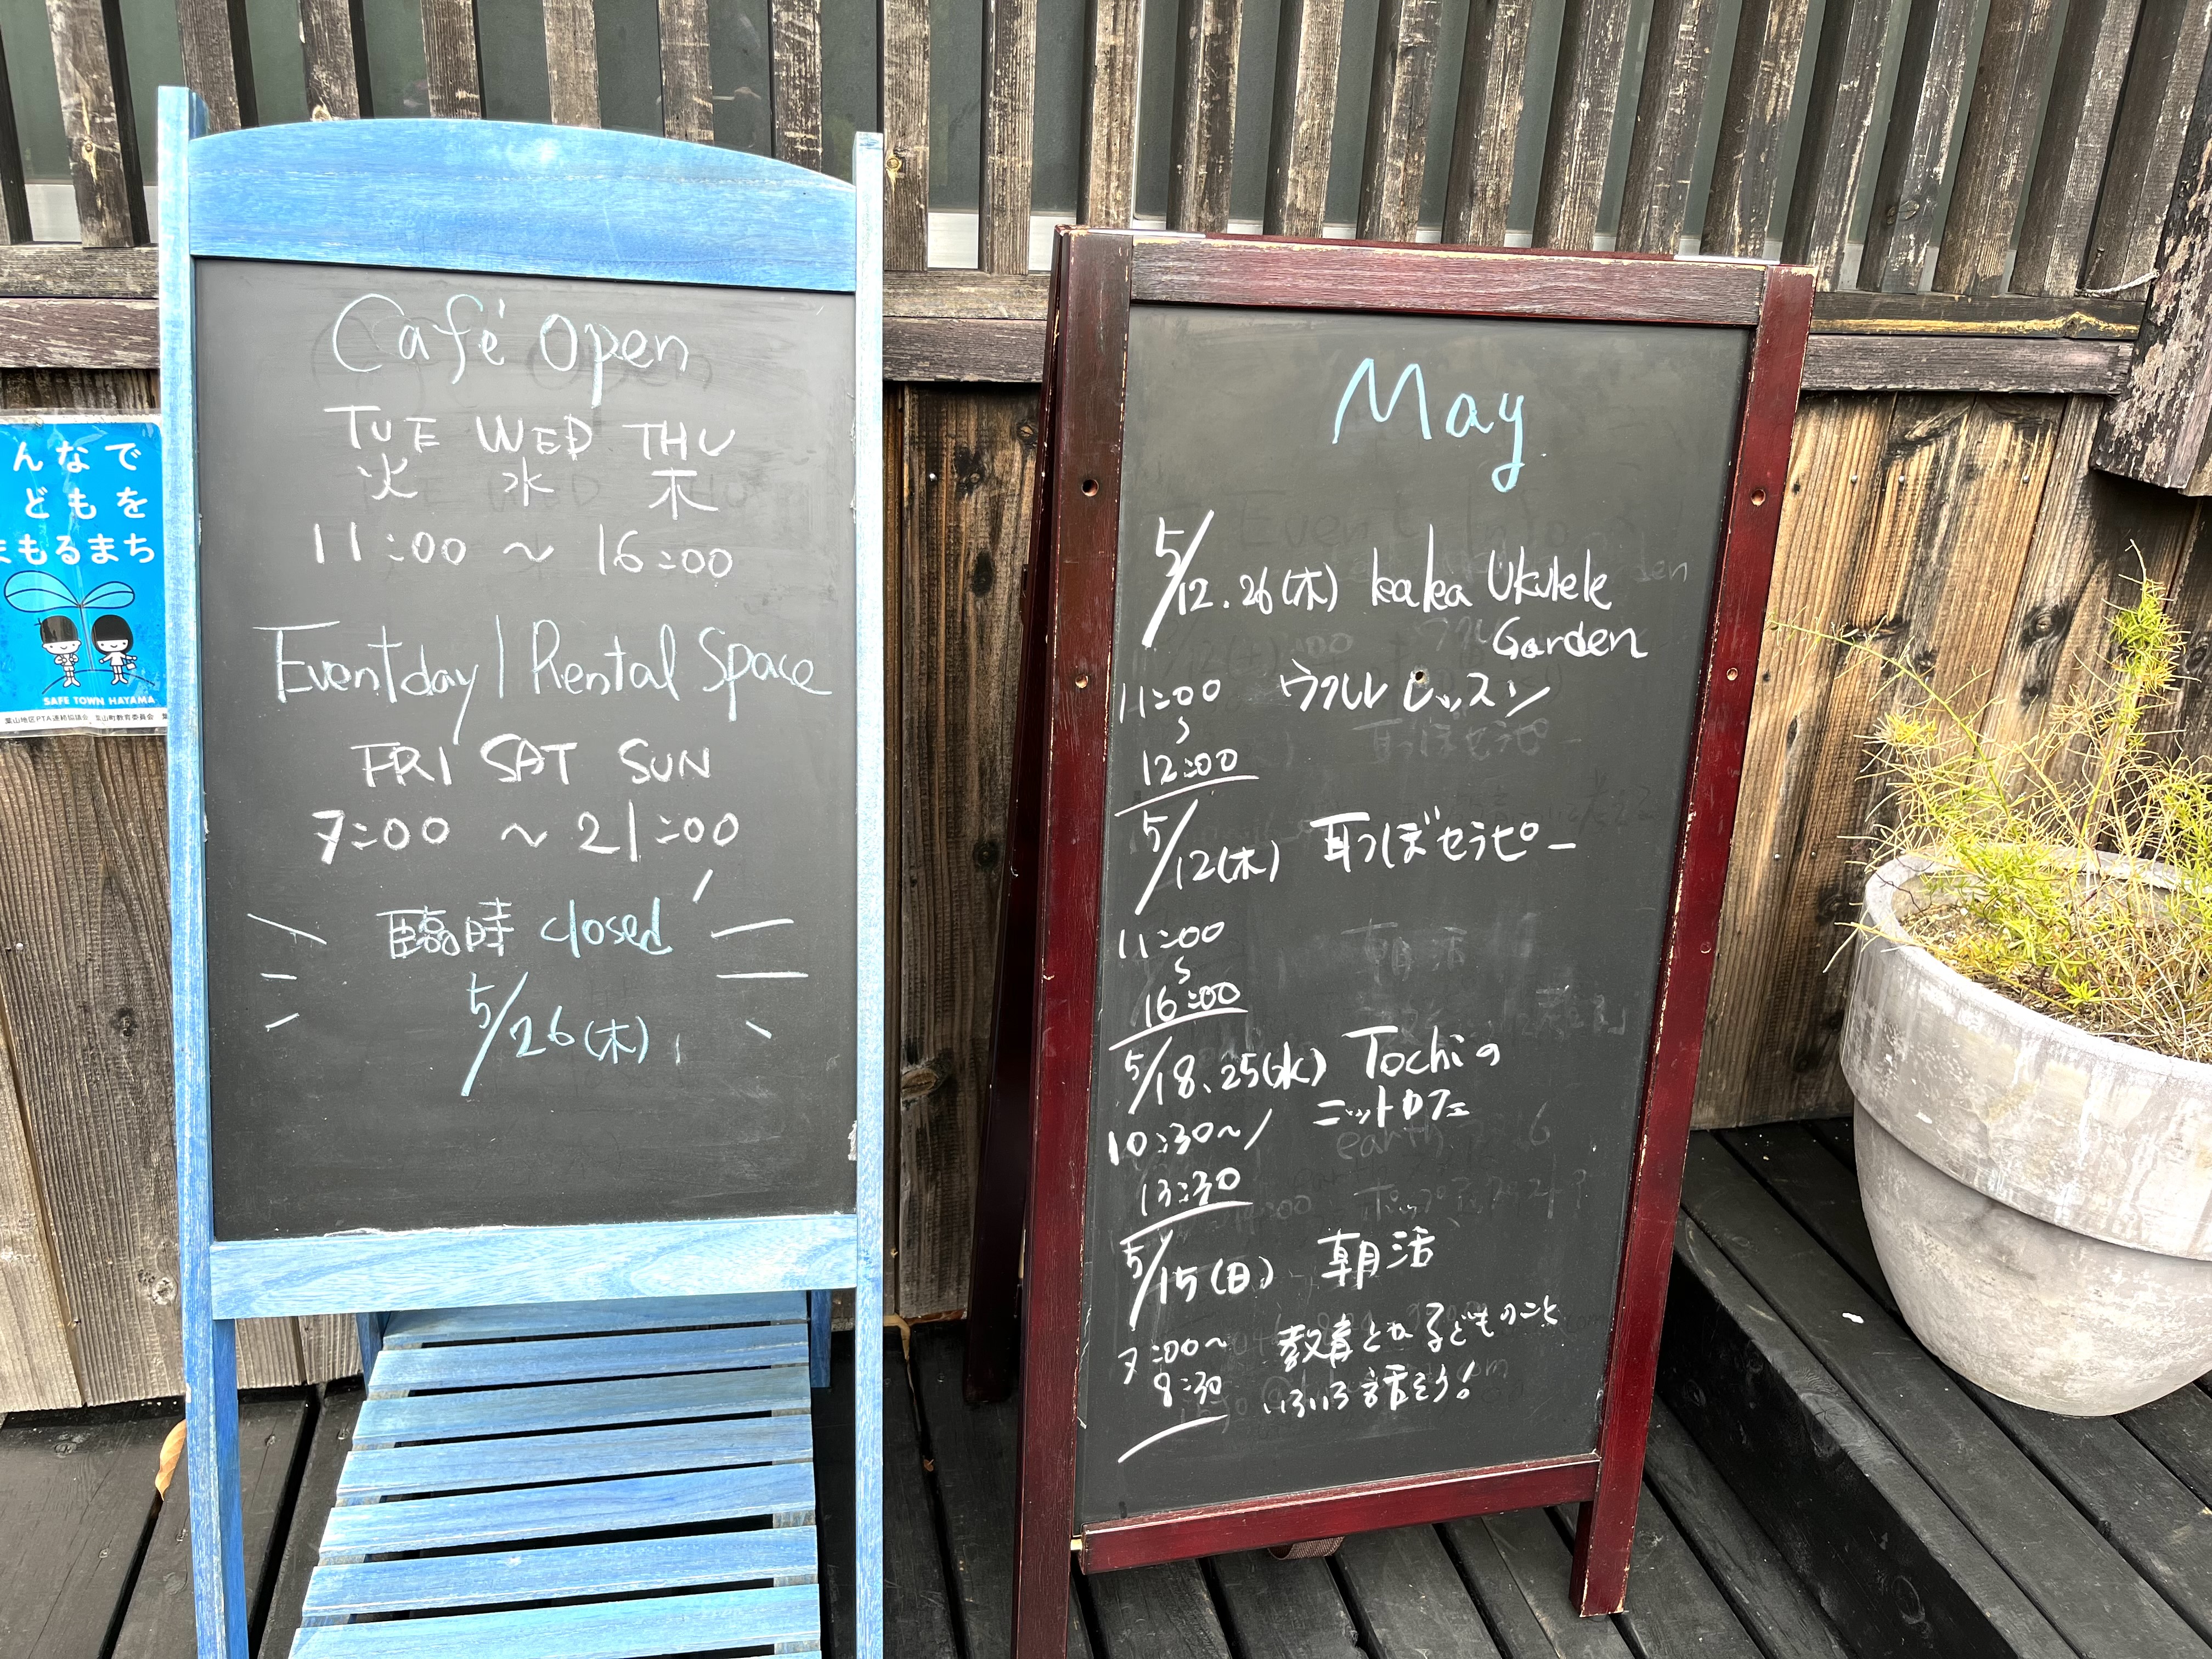 んなで
どもを
まもるまち
SAFE TOWN HAYAMA
葉山地区PTA連絡協議会 葉山町教育委員会
Café Open
TUE WED THU
火 水 木
11:00 ~ 16:00
Eventday / Rental Space
FRI SAT SUN
7:00 ~ 21:00
臨時 closed
5/26(木)
May
5/12.26(木) kaka Ukulele
Garden
11:00 ウクレレ レッスン
~
12:00
5/12(木) 耳つぼセラピー
11:00
~
16:00
5/18.25(水) Tochiの
ニットカフェ
10:30~/
13:30
5/15(日) 朝活
7:00~ 教育とか子どものこと
8:30 いろいろ話そう!